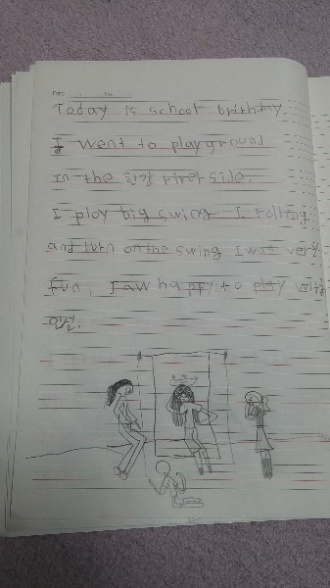 Today is school brithday.
I went to playground
in the river side.
I play big swing. I rolling
and turn on the swing I was very
fun. I aw happy to play with